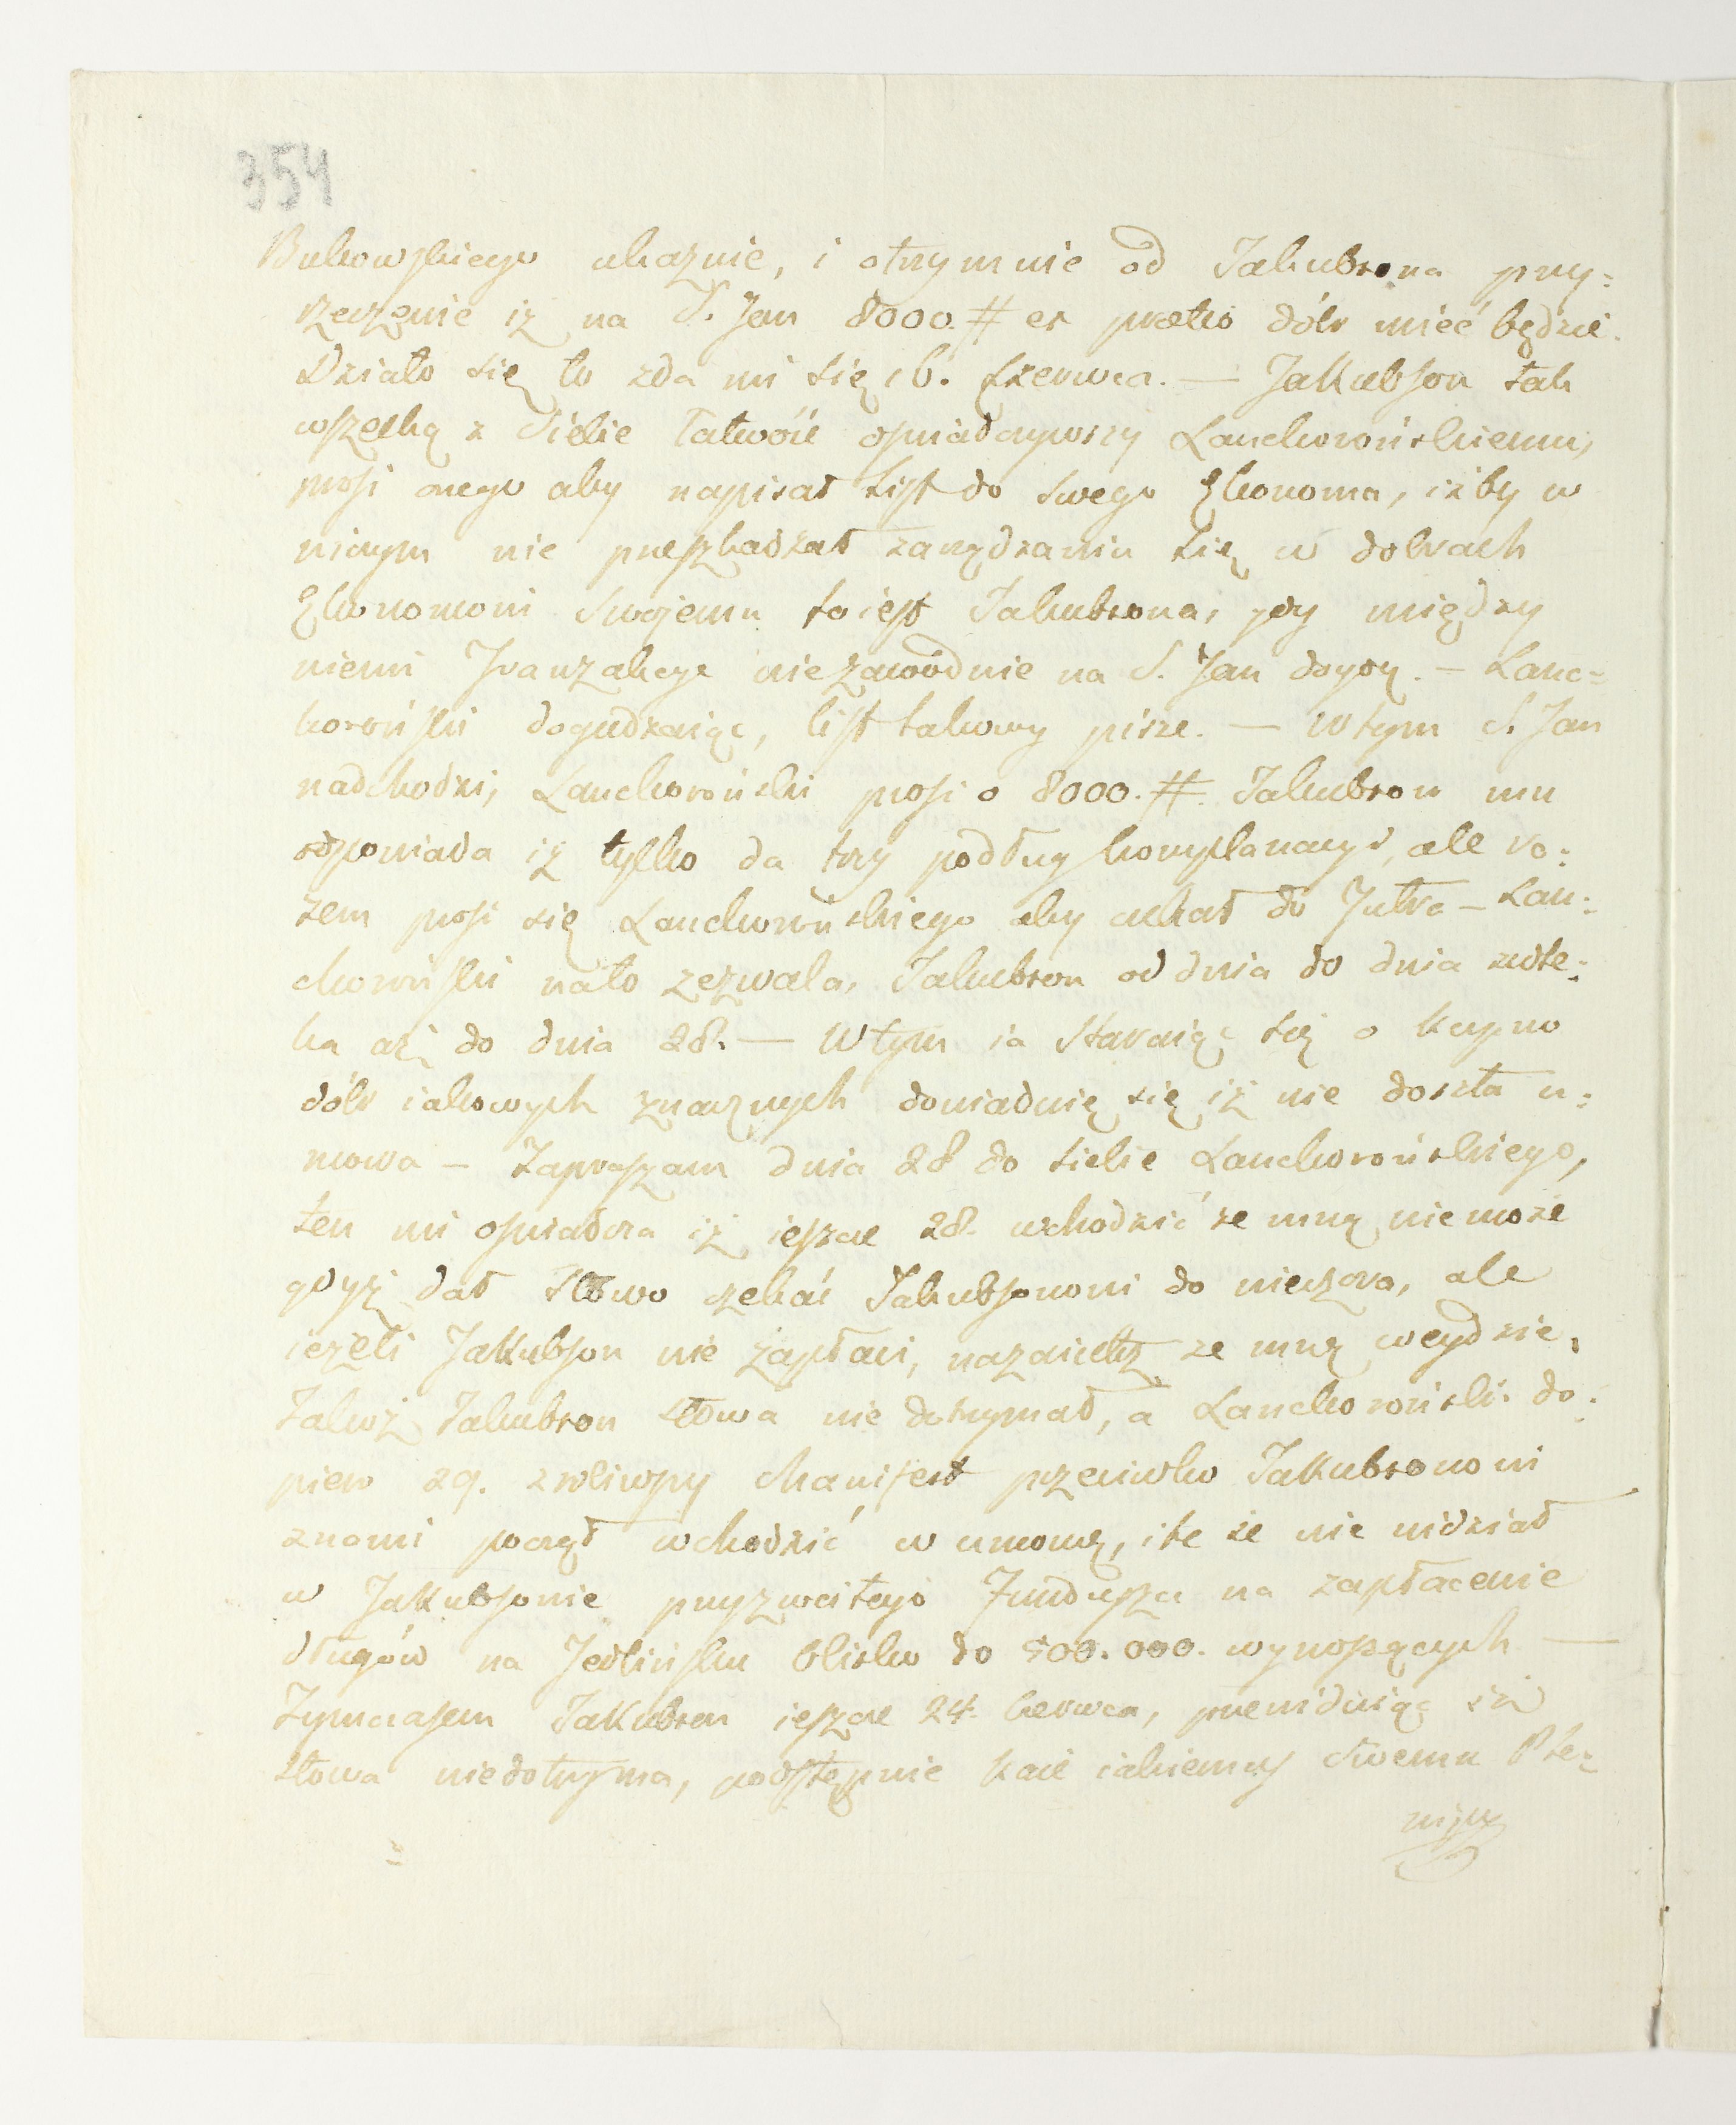 354
Bukowskiego ukaznie, i otrzymuie od Jakubsona przy:
rzeczenie iż na S. Jan 8000 # ex pretio dóbr mieć będzie.
Działo się to zda mi się 16. Czerwca. — Jakubson tak
wszelką z Siebie łatwość opwiadczywszy Lanckorońskiemu,
prosi onego aby napisał list do swego Ekonoma, iżby w
niczym nie przeszkadzał zarządzaniu się w dobrach
Ekonomowi Swojemu to iest Jakubsona, gdy między
niemi Tranzakcya niezawodnie na S. Jan doydzie. — Lanc=
koroński dogadzaiąc, list takowy pisze. — W tym S. Jan
nadchodzi, Lanckoroński prosi o 8000. #. Jakubson mu
odpowiada iż tylko da trzy podług komplanacyi, ale ra:
zem prosi się Lanckorońskiego aby czekał do Jutra — Lan:
choroński nato zezwala, Jakubson od dnia do dnia zwle:
ka aż do dnia 28. — W tym ia Staraiąc się o kupno
dóbr iakowych znacznych dowiaduię się iż nie doszła u:
mowa — Zapraszam dnia 28 do siebie Lanckorońskiego,
ten mi opwiadcza iż ieszcze 28. wchodzić ze mną nie może
gdyż dał Słowo czekać Jakubsonowi do wieczora, ale
ieżeli Jakubson nie zapłaci, nazaiutrz ze mną weydzie.
Jakoż Jakubson słowa nie dotrzymał, a Lanckoroński do:
piero 29. zrobiwszy Manifest przeciwko Jakubsonowi
znami począł wchodzić w umowę, ile że nie widział
w Jakubsonie przyzwoitego Funduszu na zapłacenie
długów na Jedlińsku blisko do 500.000. wynoszących —
Tymczasem Jakubson ieszcze 24. Czerwca, przewiduiąc iż
słowa niedotrzyma, podstępnie każe iakiemuś Swemu Ple=